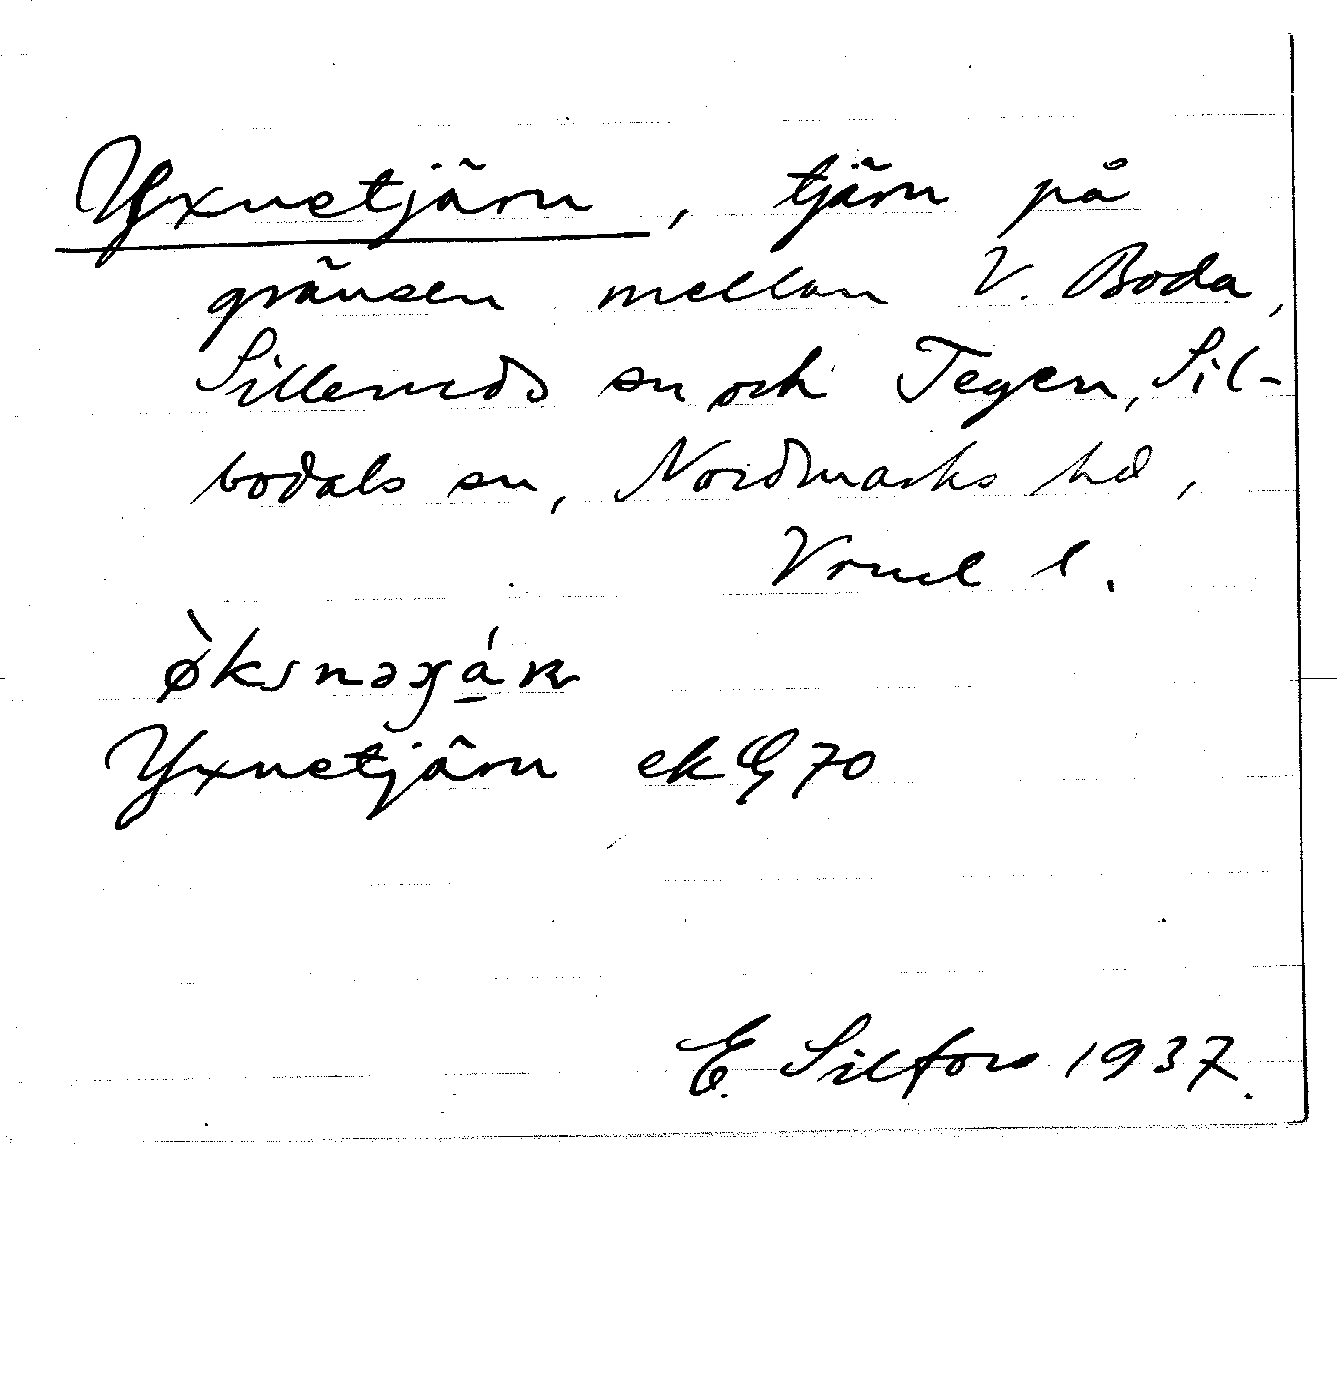 Yxnetjärn, tjärn på
gränsen mellan V. Boda,
Silleruds sn och Tegen, Sil-
bodals sn, Nordmarks hd,
Vrml l.
Yxnetjärn ek G 70
E. Silfors 1937.